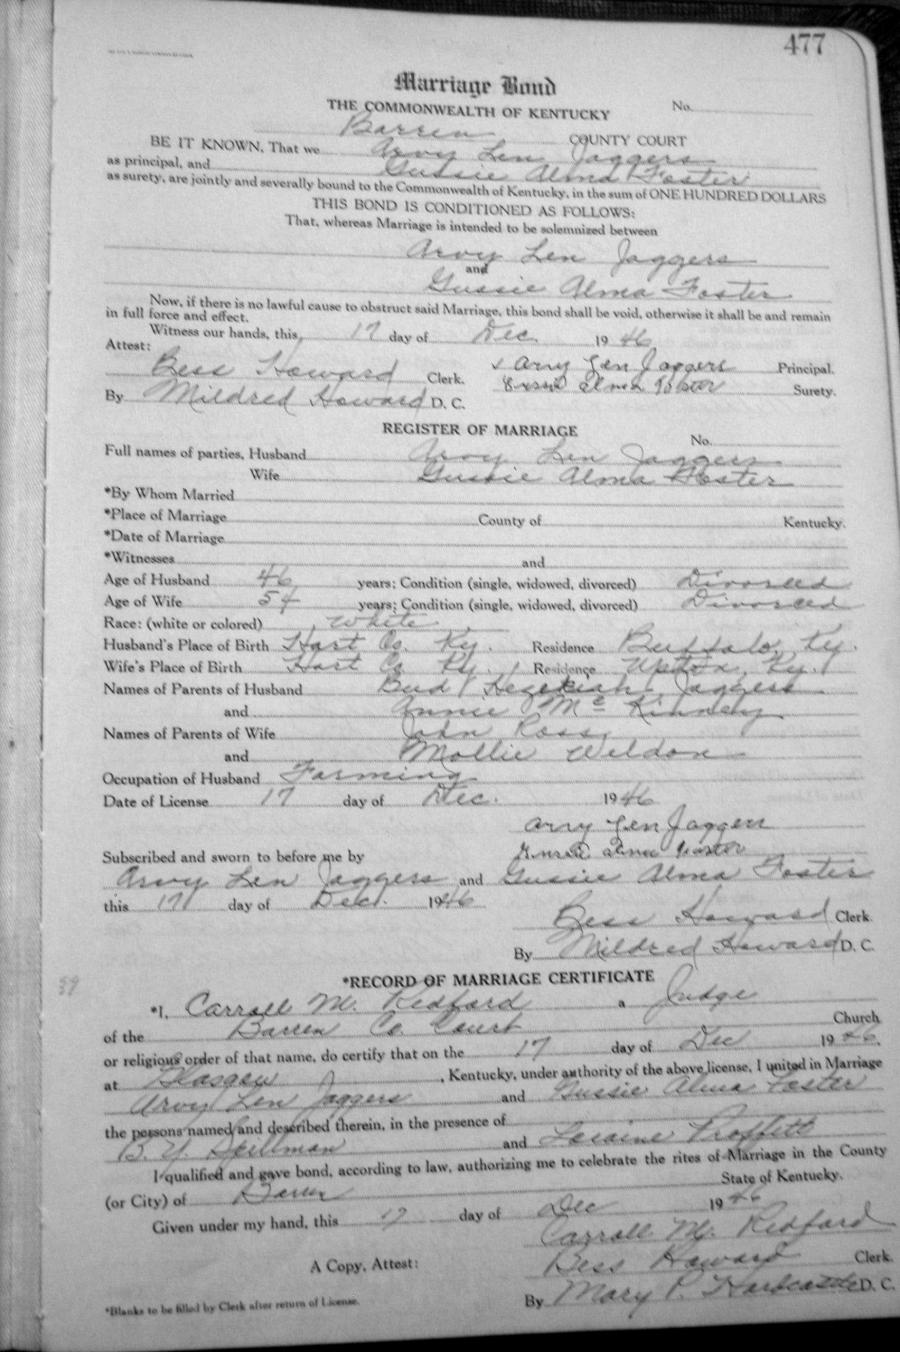 477
Marriage Bond
THE COMMONWEALTH OF KENTUCKY No.
Barren COUNTY COURT
BE IT KNOWN, That we Arvy Len Jaggers
as principal, and Gussie Alma Foster
as surety, are jointly and severally bound to the Commonwealth of Kentucky, in the sum of ONE HUNDRED DOLLARS
THIS BOND IS CONDITIONED AS FOLLOWS:
That, whereas Marriage is intended to be solemnized between
Arvy Len Jaggers
and
Gussie Alma Foster
Now, if there is no lawful cause to obstruct said Marriage, this bond shall be void, otherwise it shall and remain
in full force and effect.
Witness our hands, this, 17 day of Dec. 1946
Attest:
Arvy Len Jaggers Principal.
Bess Howard Clerk.
Alma Surety.
By Mildred Howard D. C.
REGISTER OF MARRIAGE
No.
Full names of parties, Husband Arvy Len Jaggers
Wife Gussie Alma Foster
*By Whom Married
*Place of Marriage County of Kentucky.
*Date of Marriage
*Witnesses and
Age of Husband 46 years; Condition (single, widowed, divorced) Divorced
Age of Wife 54 years; Condition (single, widowed, divorced) Divorced
Race: (white or colored) White
Husband's Place of Birth Hart Co. Ky. Residence Buffalo, Ky.
Wife's Place of Birth Hart Co. Ky. Residence Upton, Ky.
Names of Parents of Husband Bud Hezekiah Jaggers
and Annie McKinney
Names of Parents of Wife John Ross
and Mollie Weldon
Occupation of Husband Farming
Date of License 17 day of Dec. 1946
Arvy Len Jaggers
Alma Foster
Subscribed and sworn to before me by
Arvy Len Jaggers and Gussie Alma Foster
this 17 day of Dec. 1946
Bess Howard Clerk.
By Mildred Howard D. C.
*RECORD OF MARRIAGE CERTIFICATE
*I, Carroll M. Redford a Judge
of the Barren Co. Court Church
or religious order of that name, do certify that on the 17 day of Dec 1946,
at Glasgow, Kentucky, under authority of the above license, I united in Marriage
Arvy Len Jaggers and Gussie Alma Foster
the persons named and described therein, in the presence of
B. Y. Spillman and Loraine Proffitt
I qualified and gave bond, according to law, authorizing me to celebrate the rites of Marriage in the County
(or City) of Barren State of Kentucky.
Given under my hand, this 17 day of Dec 1946
Carroll M. Redford
A Copy, Attest: Bess Howard Clerk.
By Mary P. Hardcastle D. C.
*Blanks to be filled by Clerk after return of License.